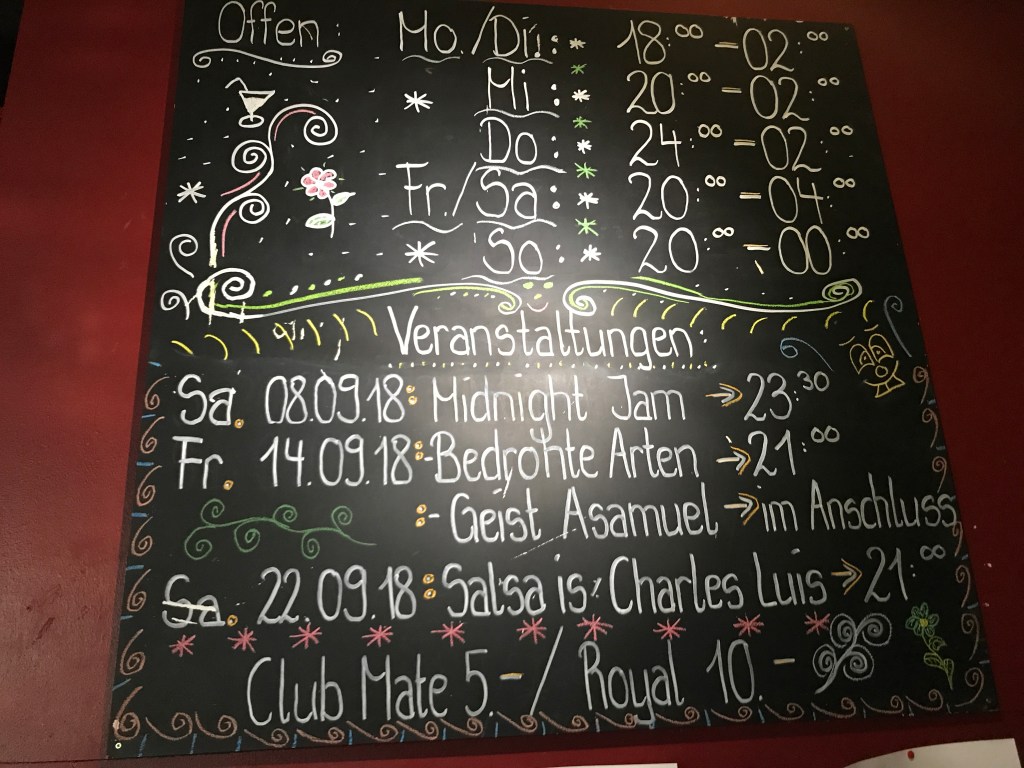 Offen: Mo./Di.: 18:00 - 02:00
Mi: 20:00 - 02:00
Do: 24:00 - 02:00
Fr./Sa: 20:00 - 04:00
So: 20:00 - 00:00
Veranstaltungen:
Sa. 08.09.18: Midnight Jam → 23:30
Fr. 14.09.18: -Bedrohte Arten → 21:00
:- Geist Asamuel → im Anschluss
Sa. 22.09.18: Salsa is: Charles Luis → 21:00
Club Mate 5.- / Royal 10.-